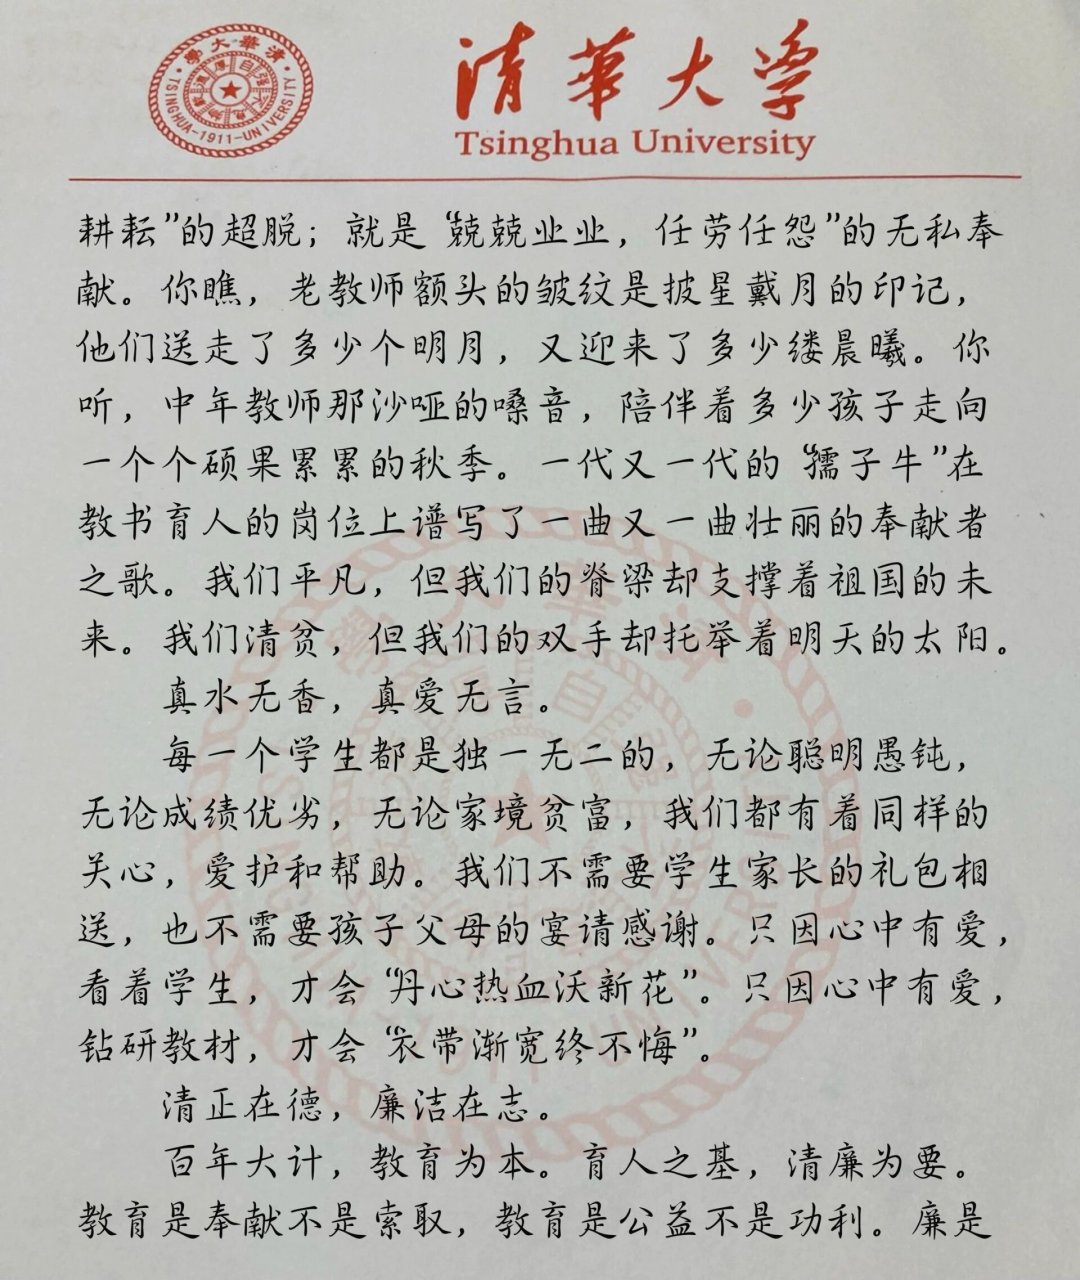 清華大学
Tsinghua University
清華大學
TSINGHUA-1911-UNIVERSITY
自强不息
厚德載物
耕耘”的超脱；就是“兢兢业业，任劳任怨”的无私奉
献。你瞧，老教师额头的皱纹是披星戴月的印记，
他们送走了多少个明月，又迎来了多少缕晨曦。你
听，中年教师那沙哑的嗓音，陪伴着多少孩子走向
一个个硕果累累的秋季。一代又一代的“孺子牛”在
教书育人的岗位上谱写了一曲又一曲壮丽的奉献者
之歌。我们平凡，但我们的脊梁却支撑着祖国的未
来。我们清贫，但我们的双手却托举着明天的太阳。
真水无香，真爱无言。
每一个学生都是独一无二的，无论聪明愚钝，
无论成绩优劣，无论家境贫富，我们都有着同样的
关心，爱护和帮助。我们不需要学生家长的礼包相
送，也不需要孩子父母的宴请感谢。只因心中有爱，
看着学生，才会“丹心热血沃新花”。只因心中有爱，
钻研教材，才会“衣带渐宽终不悔”。
清正在德，廉洁在志。
百年大计，教育为本。育人之基，清廉为要。
教育是奉献不是索取，教育是公益不是功利。廉是